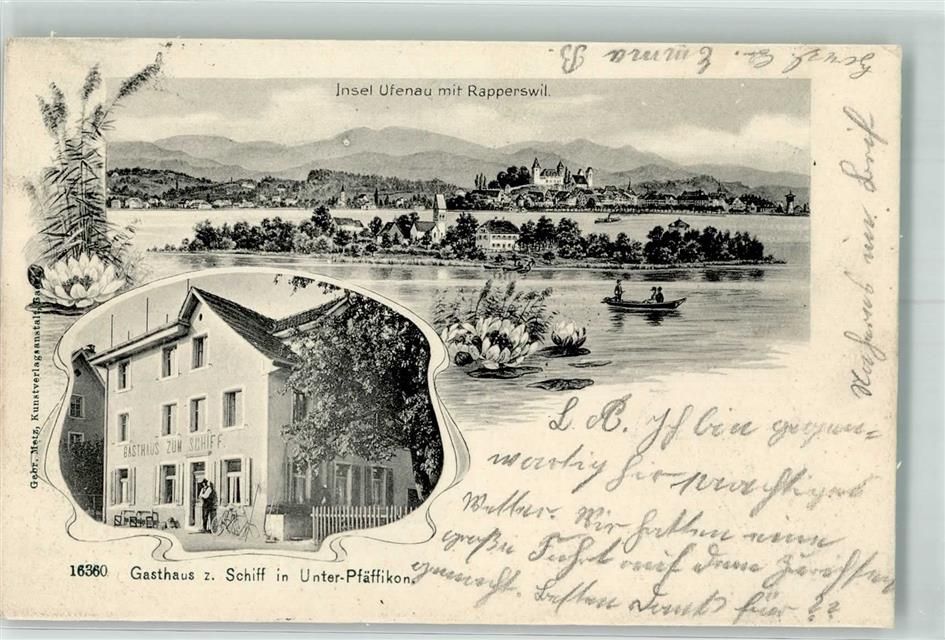 Insel Ufenau mit Rapperswil.
GASTHAUS ZUM SCHIFF.
Gebr. Metz, Kunstverlagsanstalt, Basel
16360. Gasthaus z. Schiff in Unter-Pfäffikon.
L. A. Ich bin gegen-
wärtig hier prachtiges
Wetter. Wir hatten eine
große Fahrt auf dem Zürichsee
gemacht. Besten Dank für
Emma B